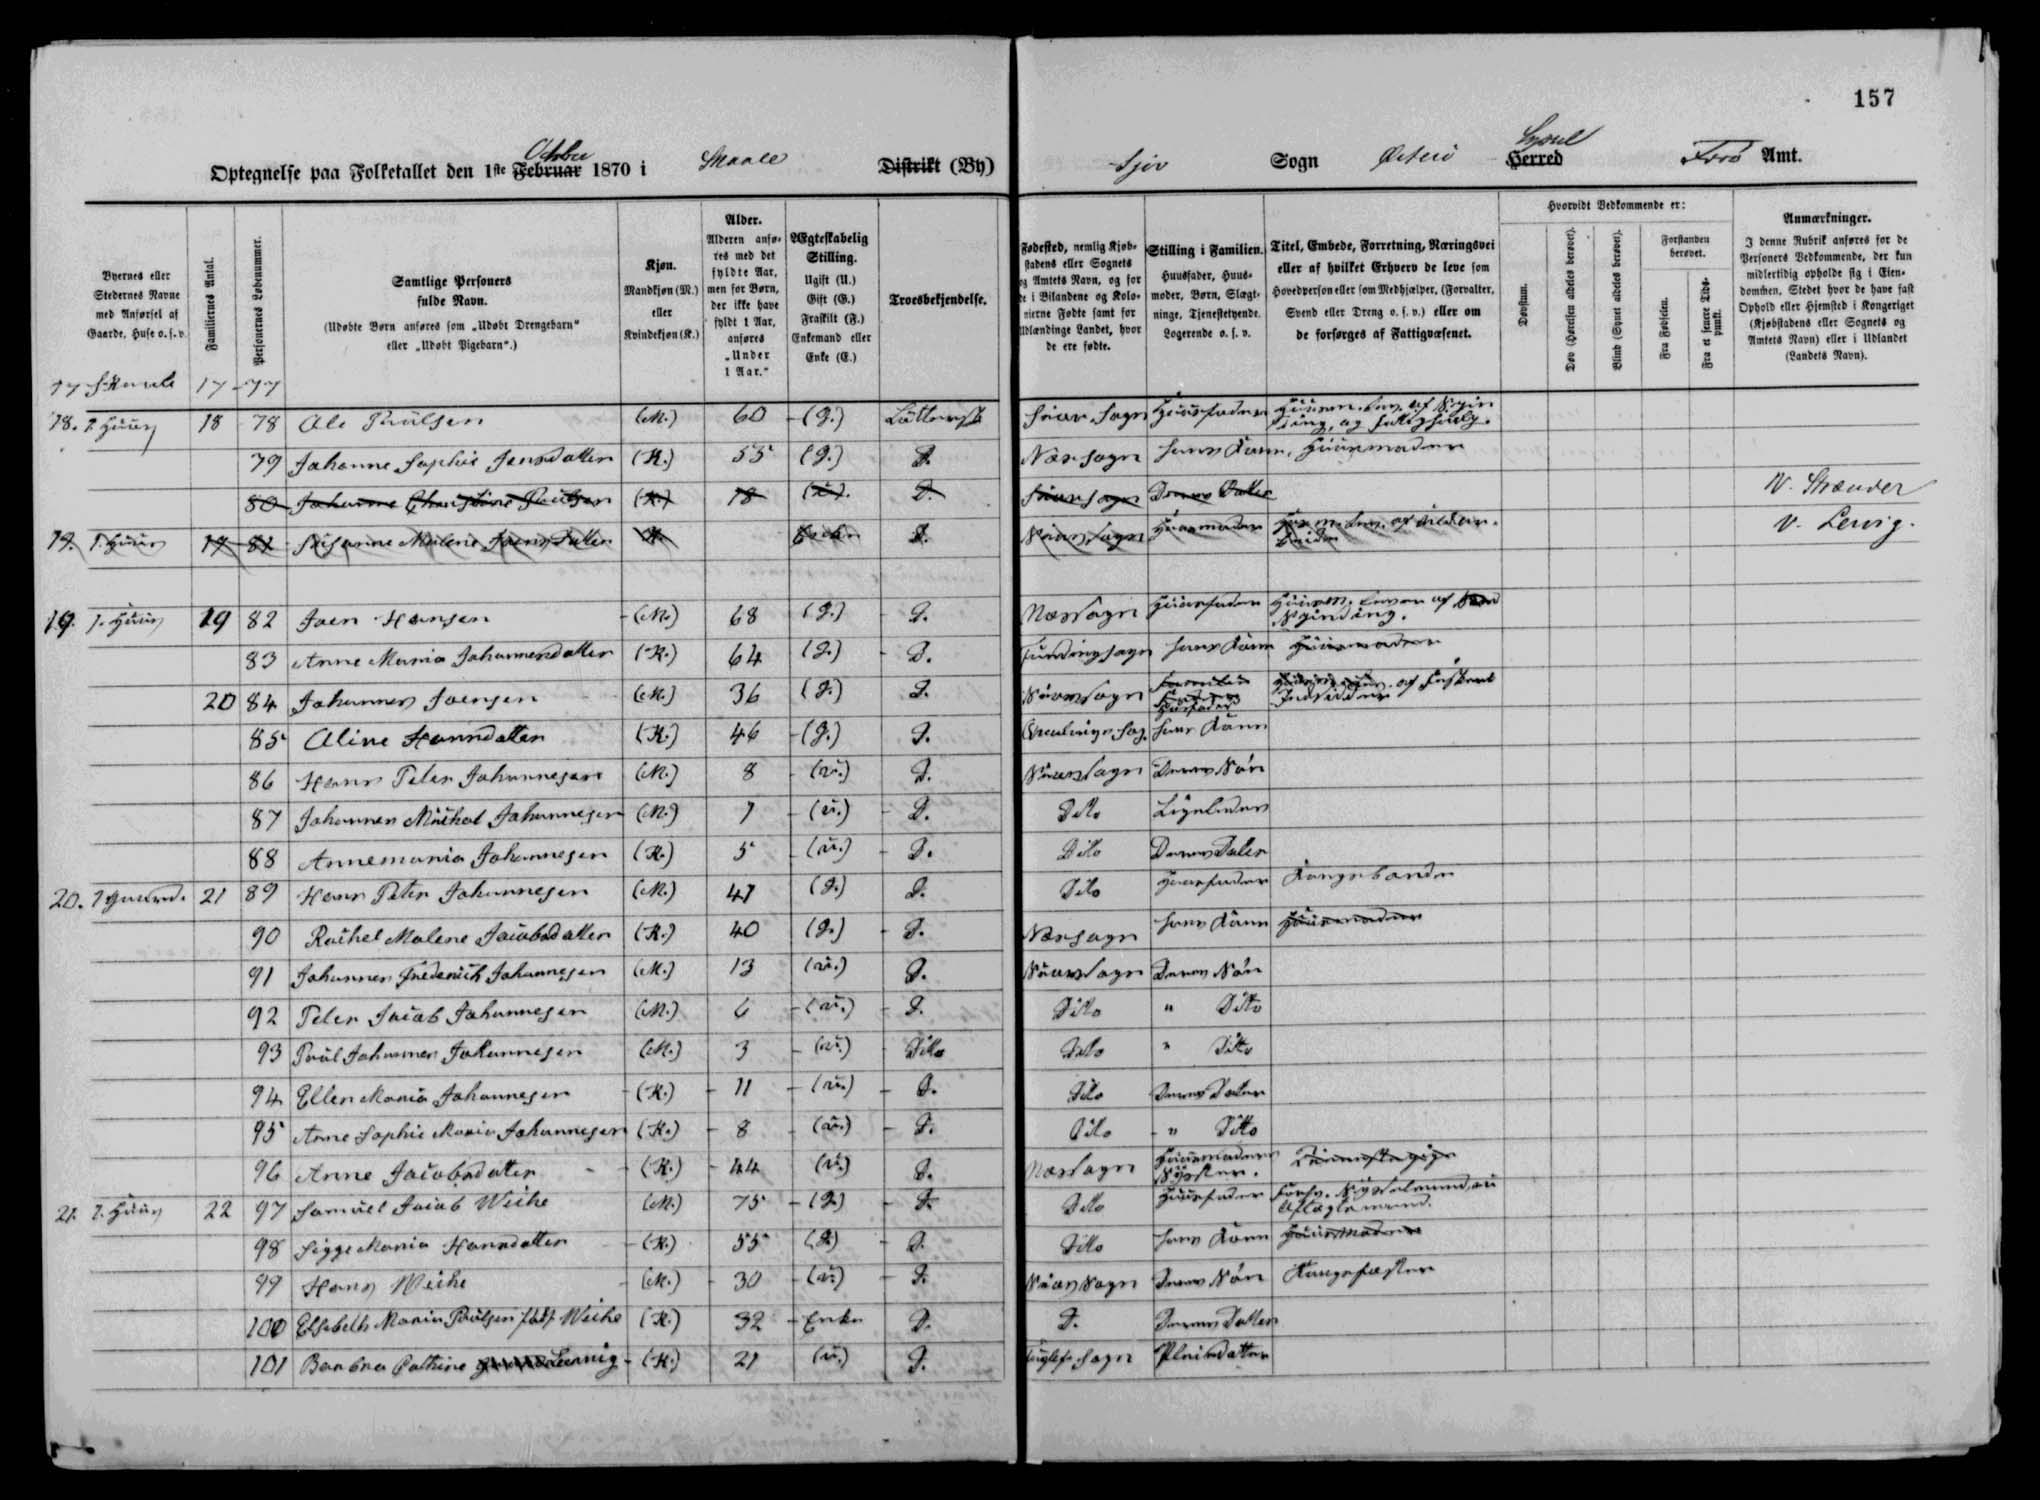 157
Octbr
Optegnelse paa Folketallet den 1ste Februar 1870 i Skaale Distrikt (By)
Sjov Sogn Østerø Syssel Herred Færø Amt.
Byernes eller Stedernes Navne med Anførsel af Gaarde, Huse o. s. v.
Familiernes Antal.
Personernes Løbenummer.
Samtlige Personers fulde Navn.
(Udøbte Børn anføres som „Udøbt Drengebarn“ eller „Udøbt Pigebarn“.)
Kjøn.
Mandkjøn (M.) eller Kvindekjøn (K.)
Alder.
Alderen anføres med det fyldte Aar, men for Børn, der ikke have fyldt 1 Aar, anføres „Under 1 Aar.“
Ægteskabelig Stilling.
Ugift (U.) Gift (G.) Fraskilt (F.) Enkemand eller Enke (E.)
Troesbekjendelse.
Fødested, nemlig Kjøbstadens eller Sognets og Amtets Navn, og for de i Bilandene og Kolonierne Fødte samt for Udlændinge Landet, hvor de ere fødte.
Stilling i Familien.
Huusfader, Huusmoder, Børn, Slægtninge, Tjenestetyende, Logerende o. s. v.
Titel, Embede, Forretning, Næringsvei eller af hvilket Erhverv de leve som Hovedperson eller som Medhjælper, (Forvalter, Svend eller Dreng o. s. v.) eller om de forsørges af Fattigvæsenet.
Hvorvidt Vedkommende er:
Døvstum.
Døv (Hørelsen aldeles berøvet).
Blind (Synet aldeles berøvet).
Forstanden berøvet.
Fra Fødselen.
Fra et senere Tidspunkt.
Anmærkninger.
I denne Rubrik anføres for de Personers Vedkommende, der kun midlertidig opholde sig i Eiendommen, Stedet hvor de have fast Ophold eller Hjemsted i Kongeriget (Kjøbstadens eller Sognets og Amtets Navn) eller i Udlandet (Landets Navn).
17 Skaale 17 - 77
18. 1. Huus 18 78 Ole Poulsen (M.) 60 - (g.) Luttersk Siov. Sogn Huusfader
79 Johanne Sophie Jensdatter (K.) 55 (g.) D. Næs sogn hans Kone, Huusmoder
80 Johanne Christine Poulsen (K.) 18 (u). D. Siov sogn Deres Datter V. Strænder
19. 1. Huus 19 81 Susanne Malene Joensdatter K. Enke D. Siov, Sogn Huusmoder V. Lervig.
19. 1. Huus 19 82 Joen Hansen - (M.) 68 (g.) D. Næs Sogn Huusfader
83 Anne Maria Johannesdatter (K.) 64 (g.) - D. Funding sogn hans Kone Huusmoder
20 84 Johannes Joensen (M.) 36 (g.) D. Siovs Sogn Indsidder
85 Oline Hansdatter (K.) 46 - (g.) D. hans Kone
86 Hans Peter Johannesen (M.) 8 - (u.) D. Siovs Sogn Deres Søn
87 Johannes Michal Johannesen (M.) 7 - (u.) - D. Dito Ligeledes
88 Annemaria Johannesen (K.) 5 - (u.) - D. Dito Deres Dater
20. 21 89 Hans Peter Johannesen (M.) 41 (g.) D. Dito Huusfader Kongsbonde
90 Rachel Malene Jacobsdatter (K.) 40 (g.) - D. Næs sogn hans Kone Huusmoder
91 Johannes Frederich Johannesen (M.) 13 (u.) D. Siovs Sogn Deres Søn
92 Peter Jacob Johannesen (M.) 6 - (u.) - D. Dito " Ditto
93 Poul Johannes Johannesen (M.) 3 - (u.) - Dito Dito " Ditto
94 Ellen Maria Johannesen - (K.) - 11 - (u.) - D. Dito Deres Dater
95 Anne Sophie Maria Johannesen (K.) - 8 - (u.) - D. Dito - " Ditto
96 Anne Jacobsdatter - - (K.) - 44 (u.) D. Næs Sogn Huusmoders Syster. Tienestepige
21. 1. Huus 22 97 Samuel Jacob Weihe (M.) 75 - (g.) - D. Dito Huusfader
98 Sigge Maria Hansdatter - (K.) - 55 (g.) - D. Dito hans Kone Huusmoder
99 Hans Weihe - (M.) - 30 - (u.) - D. Siovs Sogn Deres Søn Kongsfæster
100 Elsebeth Maria Poulsen født Weihe (K.) - 32 - Enke D. D. Deres Datter
101 Barbra Cathrine Lervig - (K.) - 21 (u.) D. Fuglefi. Sogn Pleiedatter